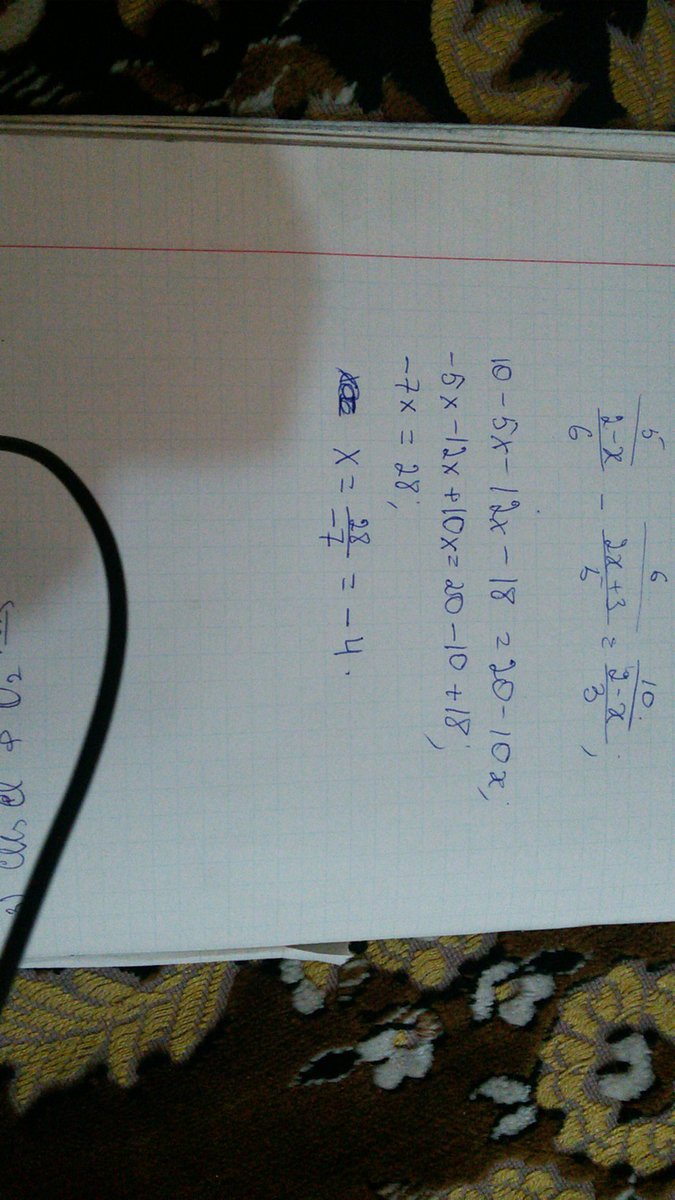 5 6 10
2-x/6 - 2x+3/5 = 2-x/3;
10-5x-12x-18=20-10x;
-5x-12x+10x=20-10+18;
-7x=28;
x=28/-7=-4.